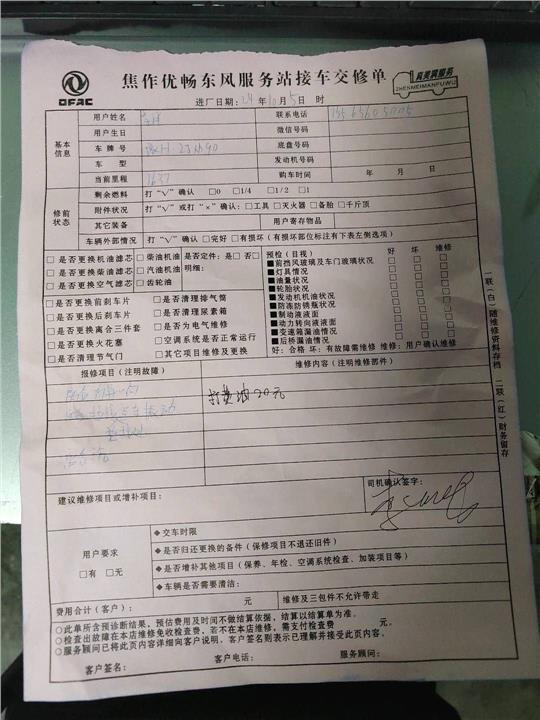 DFAC
焦作优畅东风服务站接车交修单
真美满服务
ZHENMEIMANFUWU
进厂日期: 24 年 10 月 5 日 时
基本信息
用户姓名 联系电话
用户生日 微信号码
车牌号 底盘号码
车型 发动机号码
当前里程 1637 购车时间 年 月 日
修前状态
剩余燃料 打“√”确认 □0 □1/4 □1/2 □1
附件状况 打“√”或打“×”确认: □工具 □灭火器 □备胎 □千斤顶
其它装备 用户寄存物品
车辆外部情况 打“√”确认 □完好 □有损坏 (有损坏部位标注有下表左侧选项)
□是否更换机油滤芯 □柴油机油 是否定件: 是 □否□
□是否更换柴油滤芯 □汽油机油 明细:
□是否更换空气滤芯 □齿轮油
□是否更换前刹车片 □是否清理排气筒
□是否更换后刹车片 □是否清理尿素箱
□是否更换离合三件套 □是否为电气维修
□是否更换火花塞 □空调系统是否正常运行
□是否清理节气门 □其它项目维修及更换
预检(目视) 好 坏 维修
■前挡风玻璃及车门玻璃状况 □ □ □
■灯具情况 □ □ □
■油量状况 □ □ □
■轮胎状况 □ □ □
■发动机机油状况 □ □ □
■防冻防锈瓶状况 □ □ □
■制动液液面 □ □ □
■动力转向液液面 □ □ □
■变速箱漏油情况 □ □ □
■后桥漏油情况 □ □ □
好: 合格 坏: 有故障需维修 维修: 用户确认维修
报修项目(注明故障) 维修内容(注明维修部件)
打黄油 20元
建议维修项目或增补项目:
司机确认签字:
用户要求
□有 □无
◆交车时限
◆是否归还更换的备件(保修项目不退还旧件)
◆是否增补其他项目(保养、年检、空调系统检查、加装项目等)
◆车辆是否需要清洁:
费用合计(客户): 元 维修及三包件不允许带走
○此单所含预诊断结果, 预估费用及时间不做结算依据, 结算以结算单为准。
○检查出故障在本店维修免收检查费, 若不在本店维修, 需支付检查费 元。
○服务顾问已将此页内容详细向客户说明, 客户签名则表示已理解并接受此页内容。
客户签名: 客户电话: 服务顾问:
一联(白)随维修资料存档 二联(红)财务留存